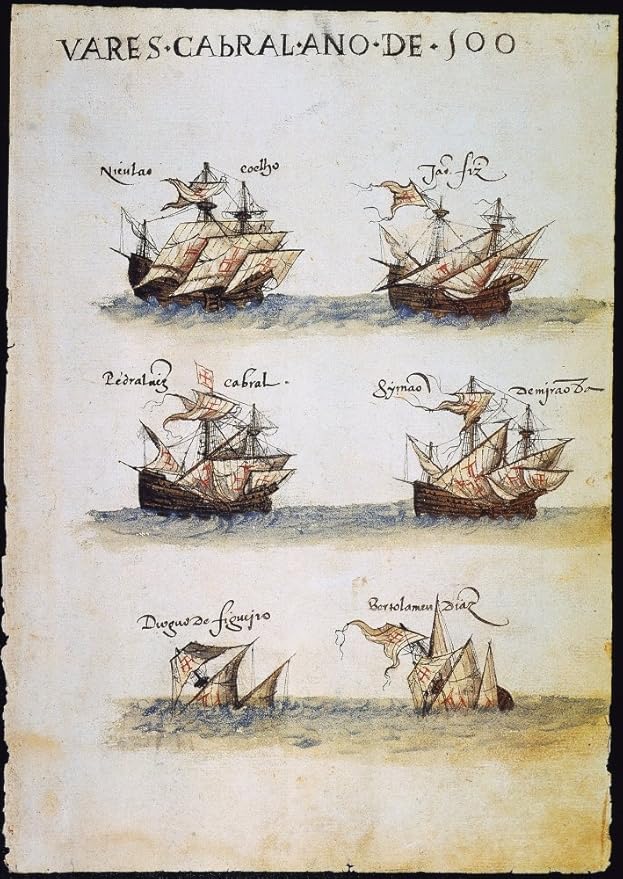 VARES·CABRAL·ANO·DE·500
17
Niculao coelho
Jao. fiz
Pedralurz cabral.
Symão Demjrãoda
Dioguo de figueiro
Bertolameu Diaz